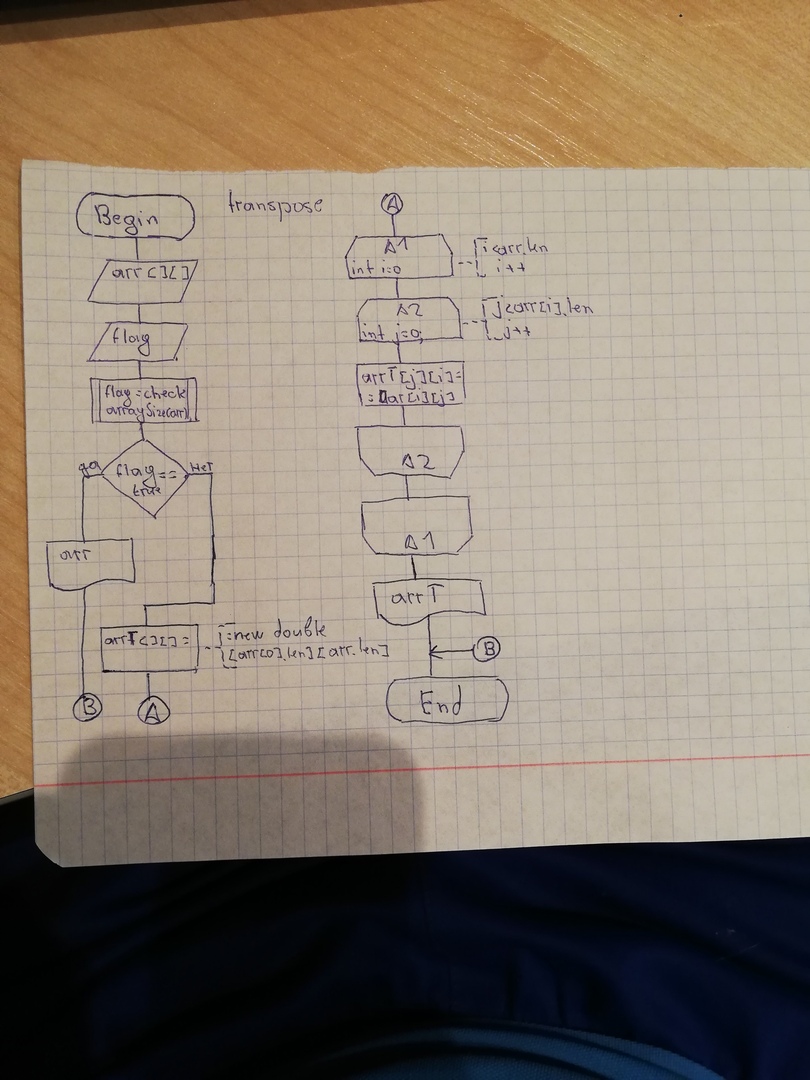 transpose
Begin
arr[][]
flag
flag=check
arraySize(arr)
flag==
true
да
нет
arr
arrT[][]=
=new double
[arr[0].len][arr.len]
B
A
A
A1
int i=0
i<arr.len
i++
A2
int j=0;
j<arr[i].len
j++
arrT[j][i]=
=arr[i][j]
A2
A1
arrT
B
End